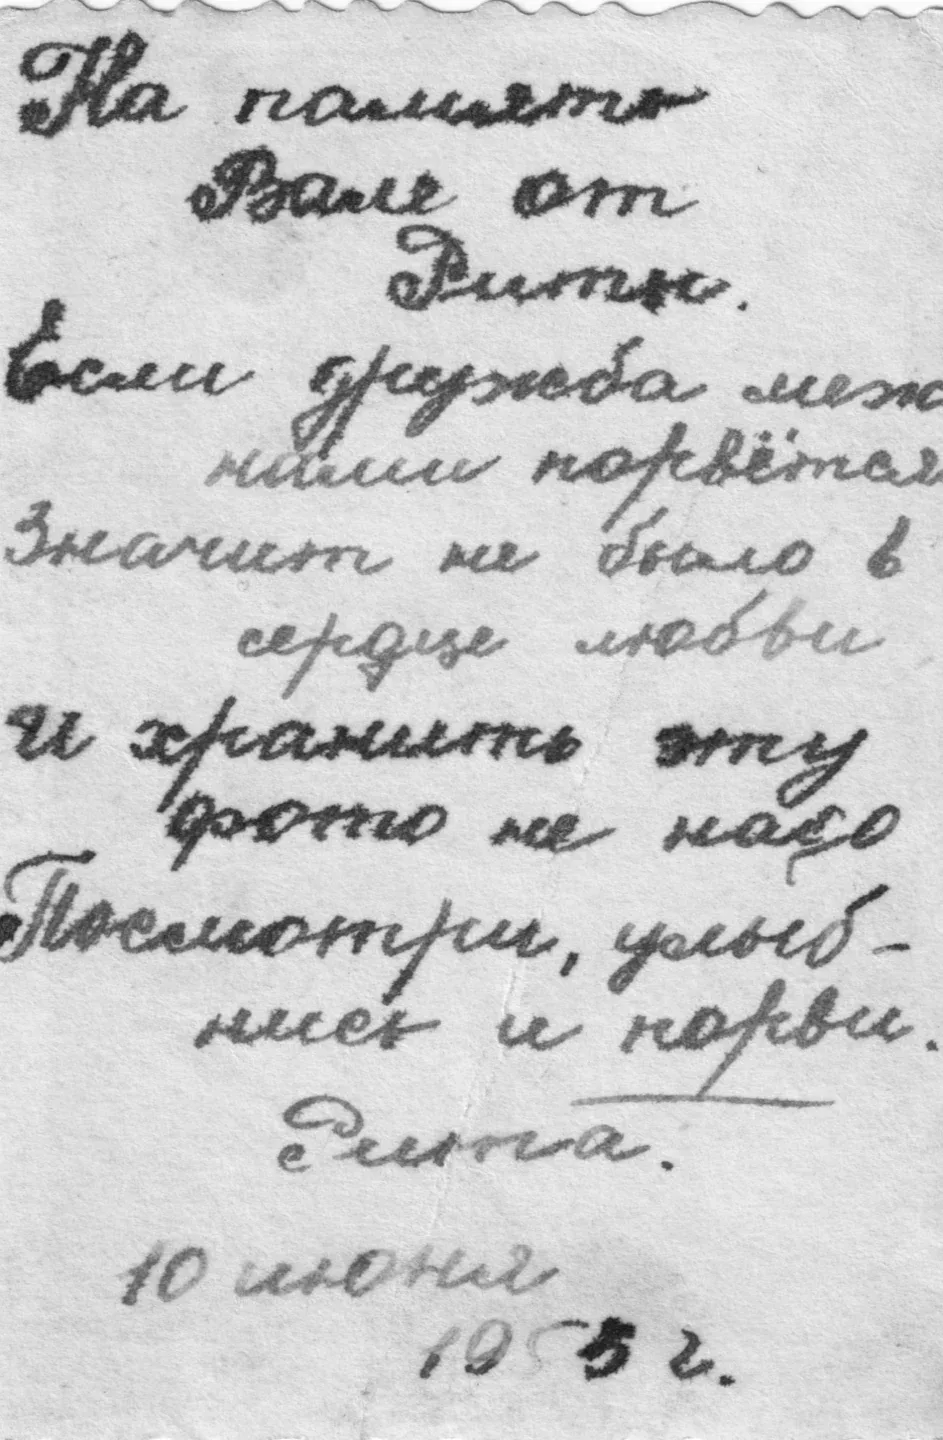 На память
Вале от
Риты.
Если дружба меж
нами порвётся
Значит не было в
сердце любви
И хранить эту
фото не надо
Посмотри, улыб-
нись и порви.
Рита.
10 июня
1955 г.